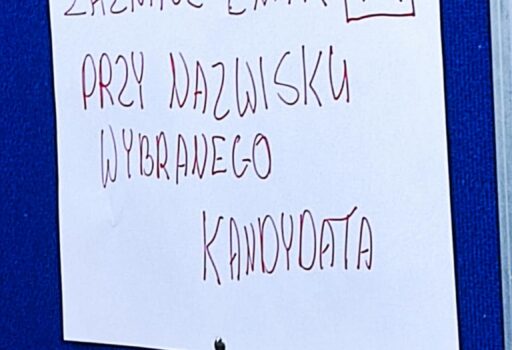 PRZY NAZWISKU
WYBRANEGO
KANDYDATA